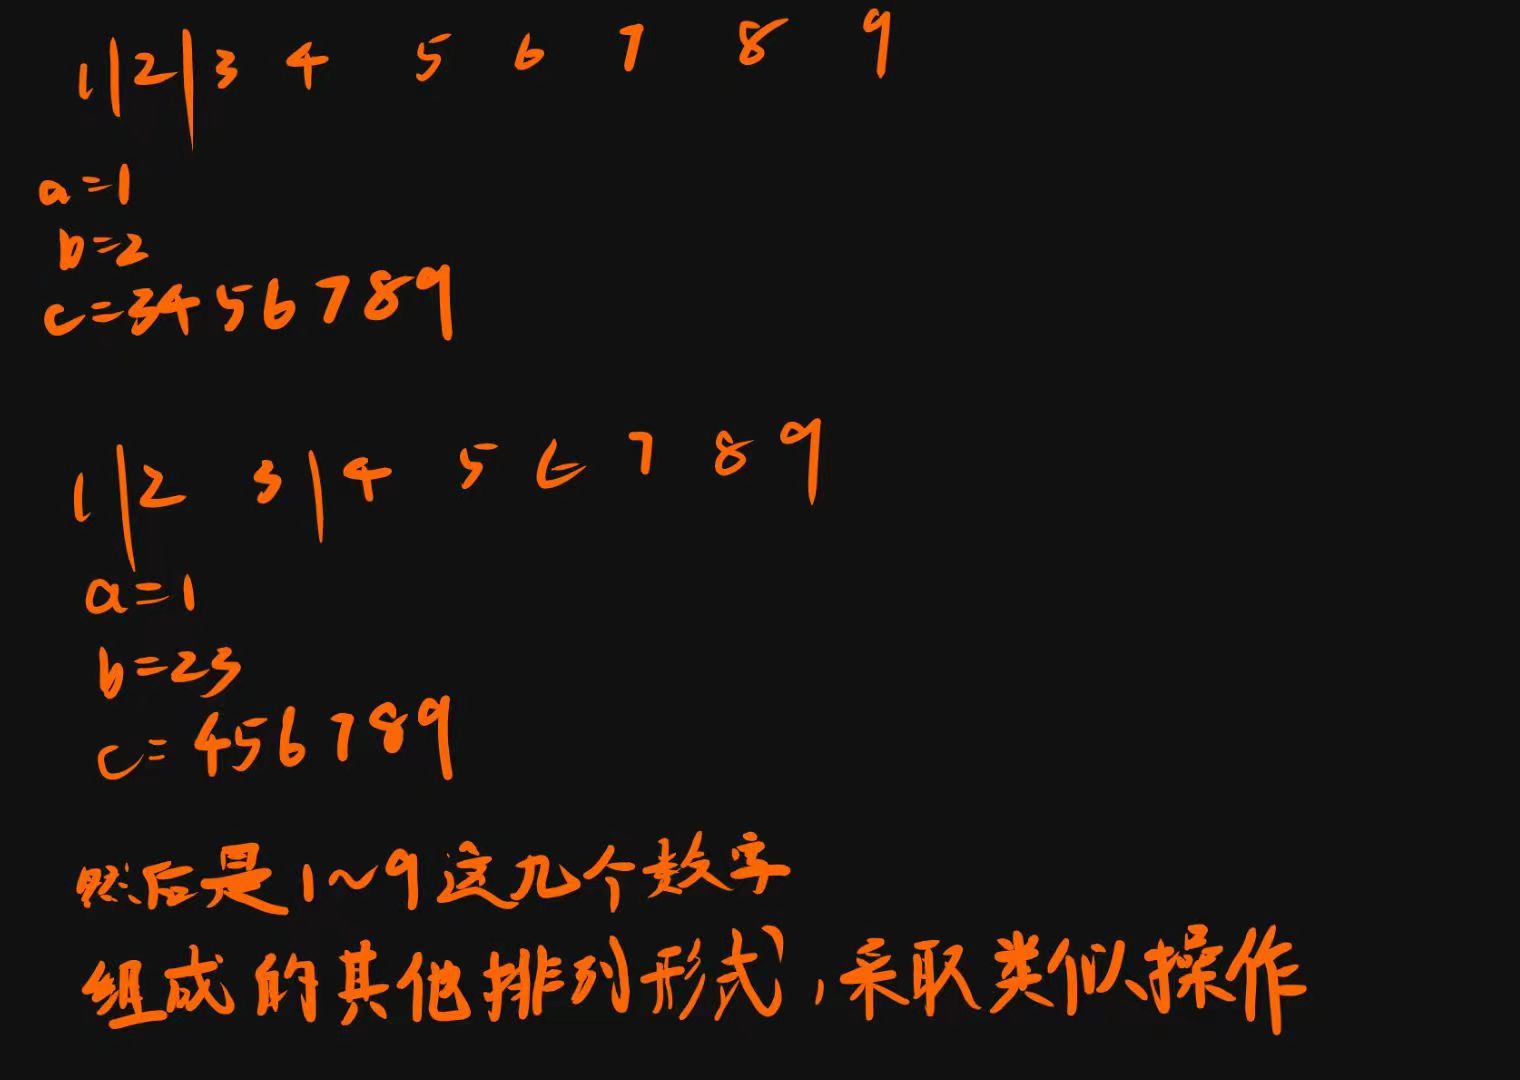 1|2|3 4 5 6 7 8 9
a=1
b=2
c=3456789
1|2 3|4 5 6 7 8 9
a=1
b=23
c=456789
然后是1~9这几个数字
组成的其他排列形式,采取类似操作